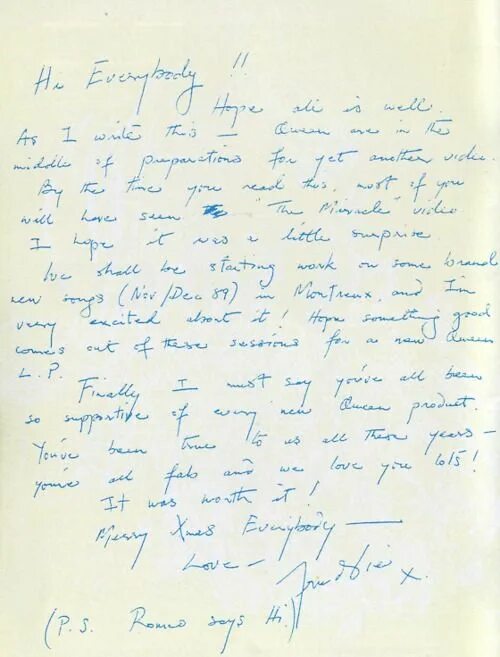 Hi Everybody !!
Hope all is well.
As I write this — Queen are in the
middle of preparations for yet another video.
By the time you read this, most of you
will have seen "The Miracle" video
I hope it was a little surprise.
We shall be starting work on some brand
new songs (Nov/Dec 89) in Montreux, and I'm
very excited about it! Hope something good
comes out of these sessions for a new Queen
L.P.
Finally I must say you've all been
so supportive of every new Queen product.
You've been true to us all these years –
you're all fab and we love you lots!
It was worth it!
Merry Xmas Everybody —
Love –
x.
(P.S. Romeo says Hi!)